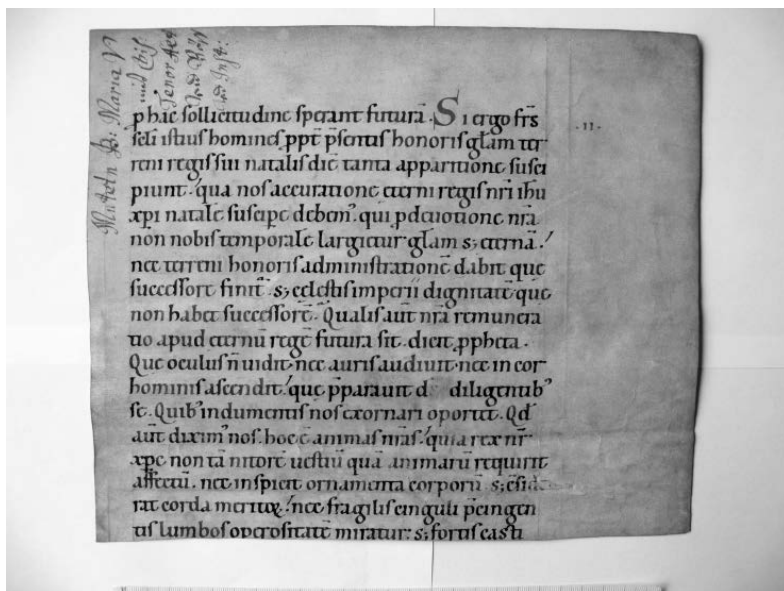 p hac sollicitudine sperant futurā. Si ergo frs̄
sc̄li istius homines ppt̄ p̄sentis honoris gl̄am ter
reni regis sui natalis diē tanta apparitione susci
piunt. qua nos accuratione eterni regis nr̄i ih̄u
xp̄i natale suscipe debemꝰ. qui p deuotione nr̄a
non nobis temporale largietur gl̄am s; eternā.
nec terreni honoris administrationē dabit que
successore finit̄. s; celestis imperii dignitatē que
non habet successorē. Qualis aut̄ nr̄a remunera
tio apud eternū regē futura sit. dicit ꝓpheta.
Que oculus n̄ uidit. nec auris audiuit. nec in cor
hominis ascendit. que p̄parauit d diligentibꝰ
se. Quibꝰ indumentis nos exornari oportet. Qd̄
aut̄ diximꝰ nos. hoc ē animas nr̄as. quia rex nr̄
xp̄c non tā nitorē uestiū quā animarū requirit
affectū. nec inspicit ornamenta corporū s; c̄side
rat corda meritoꝝ. nec fragilis cinguli p̄cingen
tis lumbos operositatē miratur. s; fortis casti
·11·
Maria
Tenor